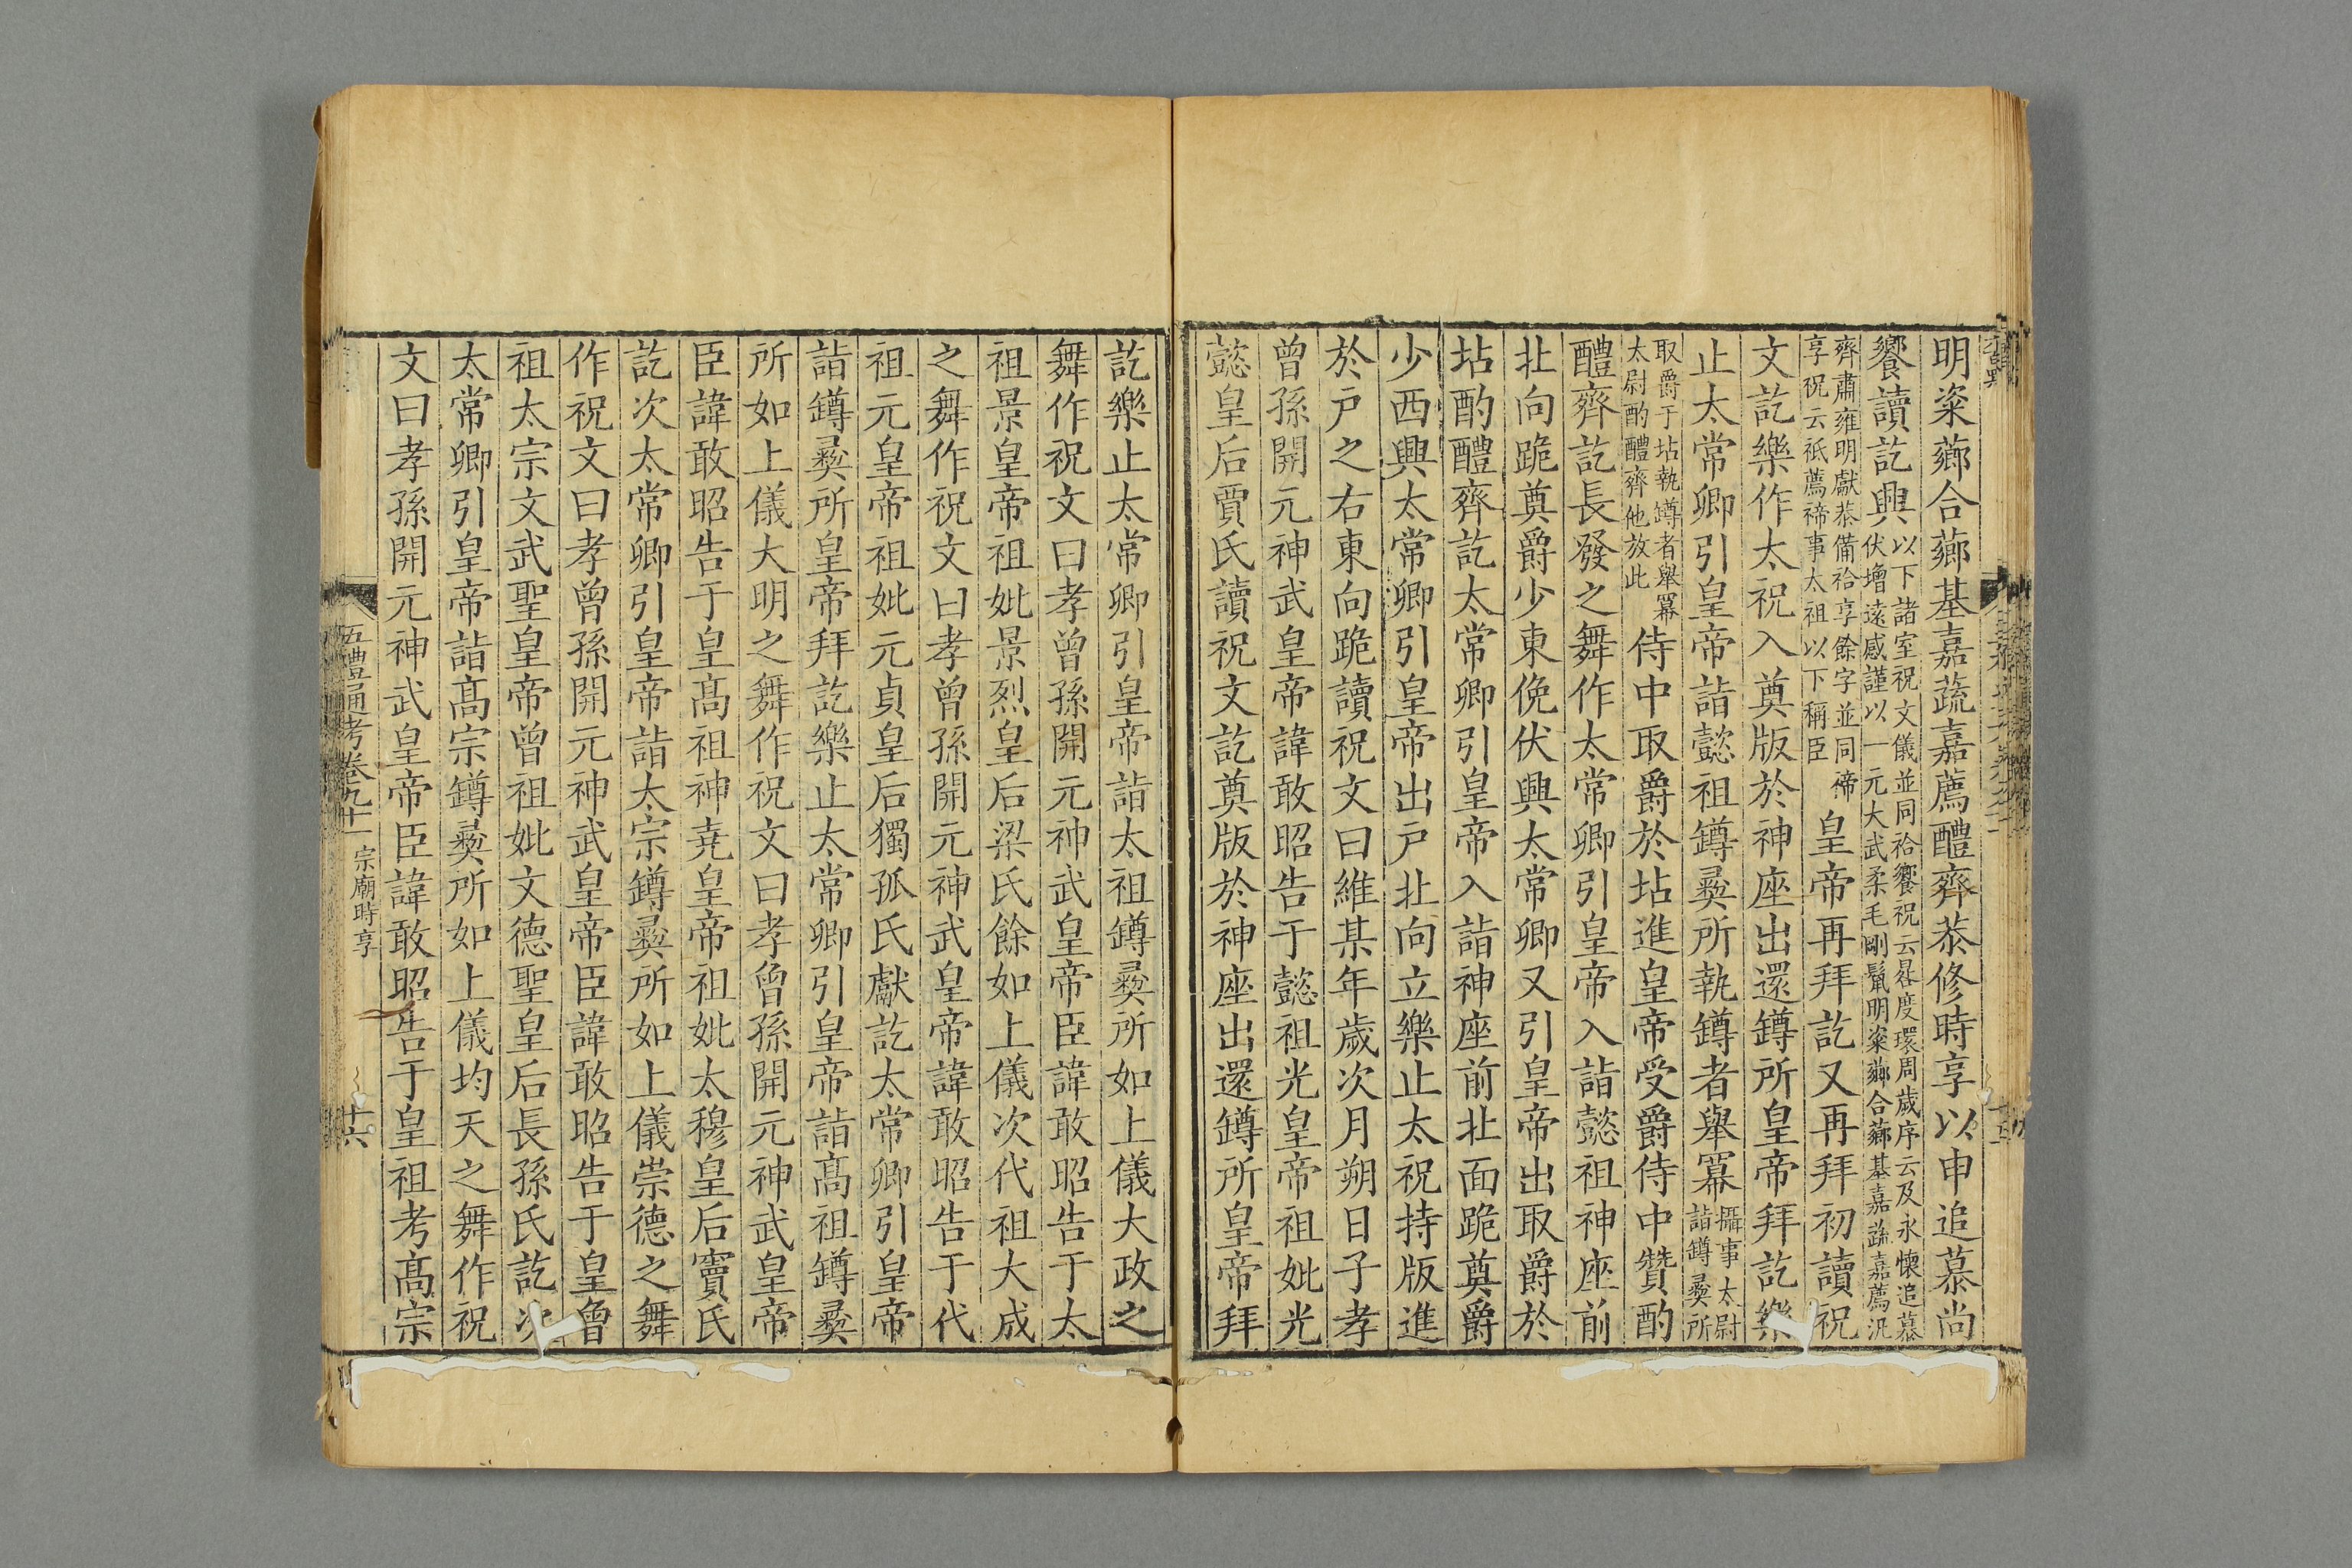 明粢薌合薌萁嘉蔬嘉薦醴齊恭修時享以申追慕尚
饗讀訖興以下諸室祝文儀並同祫饗祝云晷度環周歲序云及永懷追慕
伏增遠感謹以一元大武柔毛剛鬣明粢薌合薌萁嘉蔬嘉薦汎
齊肅雍明獻恭備祫享餘字並同禘
享祝云祗薦禘事太祖以下稱臣皇帝再拜訖又再拜初讀祝
文訖樂作太祝入奠版於神座出還罇所皇帝拜訖樂
止太常卿引皇帝詣懿祖罇彞所執罇者舉冪攝事太尉
詣罇彞所
取爵于坫執罇者舉冪
太尉酌醴齊他放此侍中取爵於坫進皇帝受爵侍中贊酌
醴齊訖長發之舞作太常卿引皇帝入詣懿祖神座前
北向跪奠爵少東俛伏興太常卿又引皇帝出取爵於
坫酌醴齊訖太常卿引皇帝入詣神座前北面跪奠爵
少西興太常卿引皇帝出戸北向立樂止太祝持版進
於戸之右東向跪讀祝文曰維某年歲次月朔日子孝
曾孫開元神武皇帝諱敢昭告于懿祖光皇帝祖妣光
懿皇后賈氏讀祝文訖奠版於神座出還罇所皇帝拜
訖樂止太常卿引皇帝詣太祖罇彞所如上儀大政之
舞作祝文曰孝曾孫開元神武皇帝臣諱敢昭告于太
祖景皇帝祖妣景烈皇后梁氏餘如上儀次代祖大成
之舞作祝文曰孝曾孫開元神武皇帝諱敢昭告于代
祖元皇帝祖妣元貞皇后獨孤氏獻訖太常卿引皇帝
詣罇彞所皇帝拜訖樂止太常卿引皇帝詣髙祖罇彞
所如上儀大明之舞作祝文曰孝曾孫開元神武皇帝
臣諱敢昭告于皇髙祖神堯皇帝祖妣太穆皇后竇氏
訖次太常卿引皇帝詣太宗罇彞所如上儀崇德之舞
作祝文曰孝曾孫開元神武皇帝臣諱敢昭告于皇曾
祖太宗文武聖皇帝曾祖妣文德聖皇后長孫氏訖次
太常卿引皇帝詣髙宗罇彞所如上儀均天之舞作祝
文曰孝孫開元神武皇帝臣諱敢昭告于皇祖考髙宗
五禮通考卷九十一 宗廟時享 十六